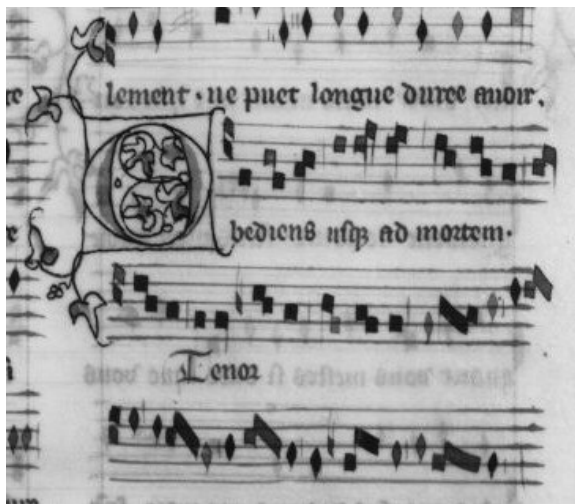 lement · ne puet longue duree auoir.
Obediens usqꝫ ad mortem·
Tenor